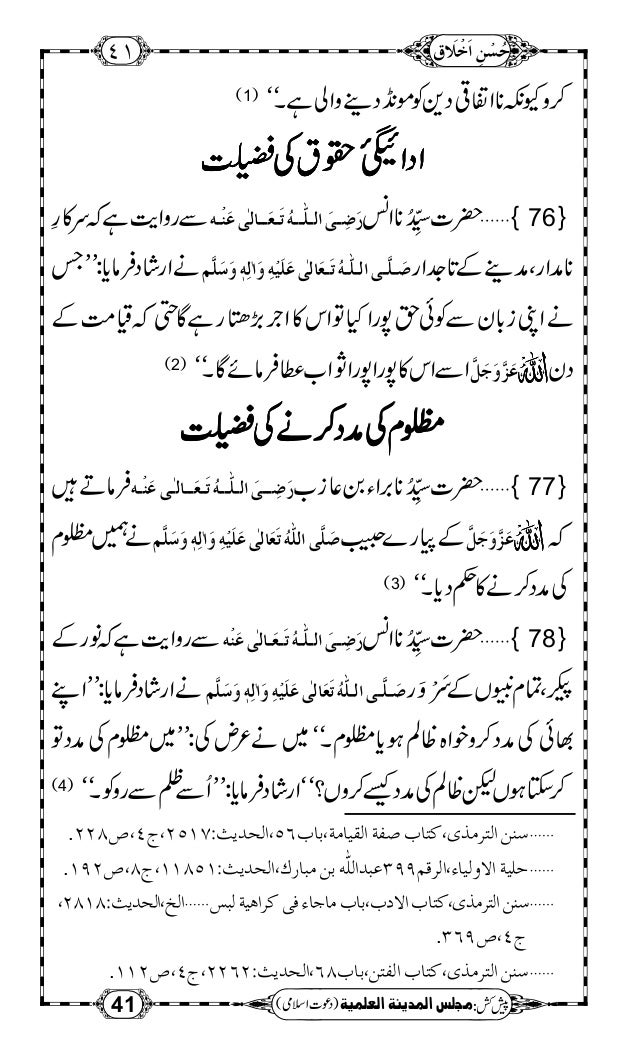 حُسْنِ اَخْلَاق
٤١
کرو کیونکہ نااتفاقی دین کو مونڈ دینے والی ہے۔‘‘ (1)
ادائیگیٔ حقوق کی فضیلت
{76}……حضرت سیِّدُنا انس رَضِیَ اللّٰہُ تَعَالٰی عَنْہ سے روایت ہے کہ سرکارِ
نامدار، مدینے کے تاجدار صَلَّی اللّٰہُ تَعَالٰی عَلَیْہِ وَاٰلِہٖ وَسَلَّم نے ارشاد فرمایا:’’جس
نے اپنی زبان سے کوئی حق پورا کیا تو اس کا اجر بڑھتا رہے گا حتی کہ قیامت کے
دن اللّٰہ عَزَّوَجَلَّ اسے اس کا پورا پورا ثواب عطا فرمائے گا۔‘‘ (2)
مظلوم کی مدد کرنے کی فضیلت
{77}……حضرت سیِّدُنا براء بن عازب رَضِیَ اللّٰہُ تَعَالٰی عَنْہ فرماتے ہیں
کہ اللّٰہ عَزَّوَجَلَّ کے پیارے حبیب صَلَّی اللّٰہُ تَعَالٰی عَلَیْہِ وَاٰلِہٖ وَسَلَّم نے ہمیں مظلوم
کی مدد کرنے کا حکم دیا۔‘‘ (3)
{78}……حضرت سیِّدُنا انس رَضِیَ اللّٰہُ تَعَالٰی عَنْہ سے روایت ہے کہ نور کے
پیکر، تمام نبیوں کے سَرْوَر صَلَّی اللّٰہُ تَعَالٰی عَلَیْہِ وَاٰلِہٖ وَسَلَّم نے ارشاد فرمایا:’’اپنے
بھائی کی مدد کرو خواہ ظالم ہو یا مظلوم۔‘‘ میں نے عرض کی:’’میں مظلوم کی مدد تو
کر سکتا ہوں لیکن ظالم کی مدد کیسے کروں؟‘‘ ارشاد فرمایا:’’اُسے ظلم سے روکو۔‘‘ (4)
……سنن الترمذی، کتاب صفة القیامة، باب٥٦، الحدیث:٢٥١٧، ج٤، ص٢٢٨.
……حلیة الاولیاء، الرقم٣٩٩عبداللّٰہ بن مبارك، الحدیث:١١٨٥١، ج٨، ص١٩٢.
……سنن الترمذی، کتاب الادب، باب ماجاء فی کراهیة لبس……الخ، الحدیث:٢٨١٨،
ج٤، ص٣٦٩.
……سنن الترمذی، کتاب الفتن، باب٦٨، الحدیث:٢٢٦٢، ج٤، ص١١٢.
پیش کش: مجلس المدینة العلمیة (دعوتِ اسلامی)
41